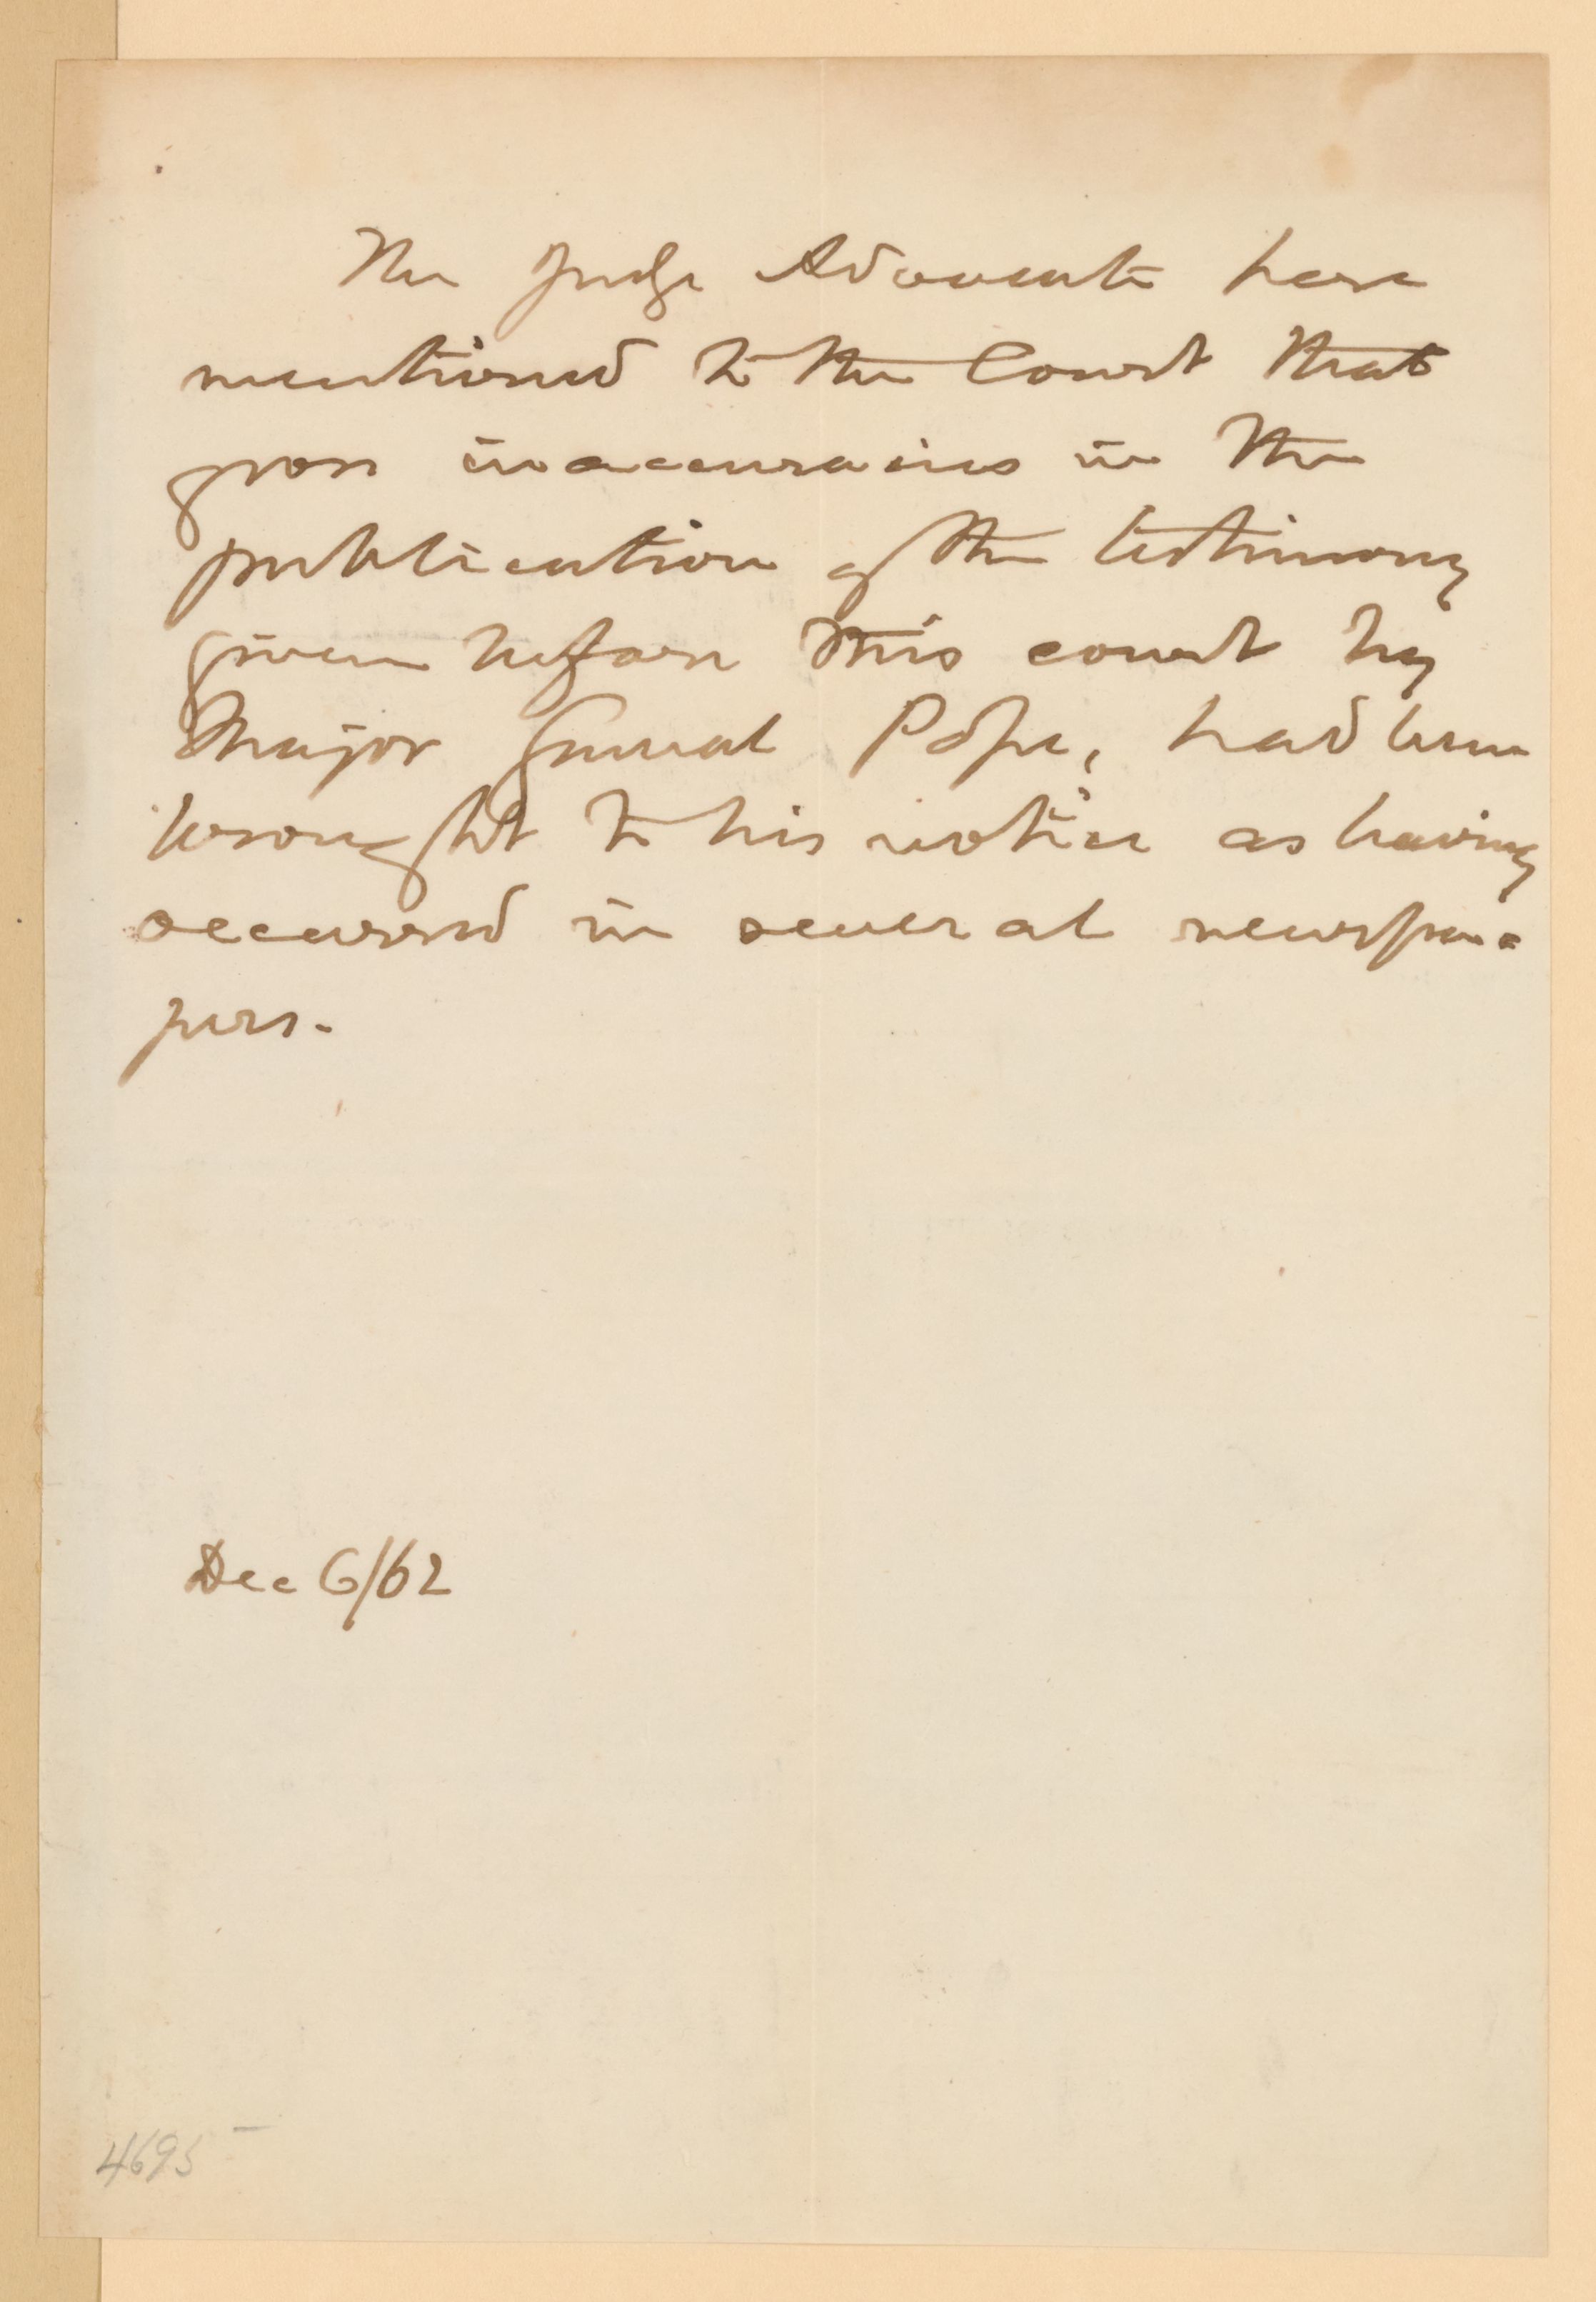 The Judge Advocate here
mentioned to the Court that
gross inaccuracies in the
publication of the testimony
given before this court by
Major General Pope, had been
brought to his notice as having
occurred in several newspa=
pers.
Dec 6/62
4695